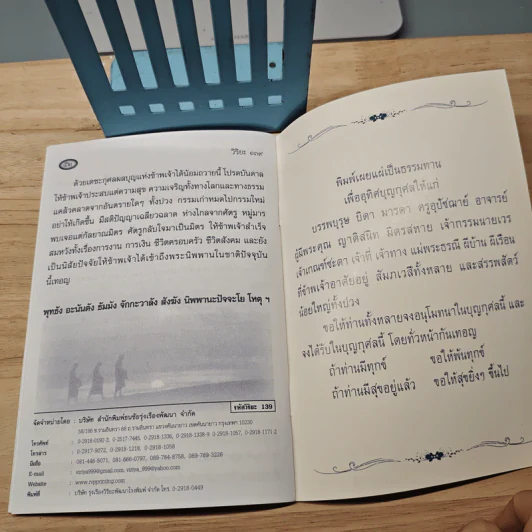 วิริยะ ๑๓๙
ด้วยเดชะกุศลผลบุญแห่งข้าพเจ้าได้น้อมถวายนี้ โปรดบันดาล
ให้ข้าพเจ้าประสบแต่ความสุข ความเจริญทั้งทางโลกและทางธรรม
แคล้วคลาดจากอันตรายใดๆ ทั้งปวง กรรมเก่าหมดไปกรรมใหม่
อย่าให้เกิดขึ้น มีสติปัญญาเฉลียวฉลาด ห่างไกลจากศัตรู หมู่มาร
พบเจอแต่กัลยาณมิตร ศัตรูกลับใจมาเป็นมิตร ให้ข้าพเจ้าสำเร็จ
สมหวังทั้งเรื่องการงาน การเงิน ชีวิตครอบครัว ชีวิตสังคม และยัง
เป็นนิสัยปัจจัยให้ข้าพเจ้าได้เข้าถึงพระนิพพานในชาติปัจจุบัน
นี้เทอญ
พุทธัง อะนันตัง ธัมมัง จักกะวาลัง สังฆัง นิพพานะปัจจะโย โหตุ ฯ
รหัสวิริยะ 139
จัดจำหน่ายโดย : บริษัท สำนักพิมพ์เลี่ยงเชียง
โทรศัพท์ :
โทรสาร :
มือถือ :
E-mail :
Website :
พิมพ์ที่ :
พิมพ์เผยแผ่เป็นธรรมทาน
เพื่ออุทิศบุญกุศลให้แก่
บรรพบุรุษ บิดา มารดา ครูอุปัชฌาย์ อาจารย์
ผู้มีพระคุณ ญาติสนิท มิตรสหาย เจ้ากรรมนายเวร
เจ้าเกณฑ์ชะตา เจ้าที่ เจ้าทาง แม่พระธรณี ผีบ้าน ผีเรือน
ที่ข้าพเจ้าอาศัยอยู่ สัมภเวสีทั้งหลาย และสรรพสัตว์
น้อยใหญ่ทั้งปวง
ขอให้ท่านทั้งหลายจงอนุโมทนาในบุญกุศลนี้ และ
จงได้รับในบุญกุศลนี้ โดยทั่วหน้ากันเทอญ
ถ้าท่านมีทุกข์ ขอให้พ้นทุกข์
ถ้าท่านมีสุขอยู่แล้ว ขอให้สุขยิ่งๆ ขึ้นไป